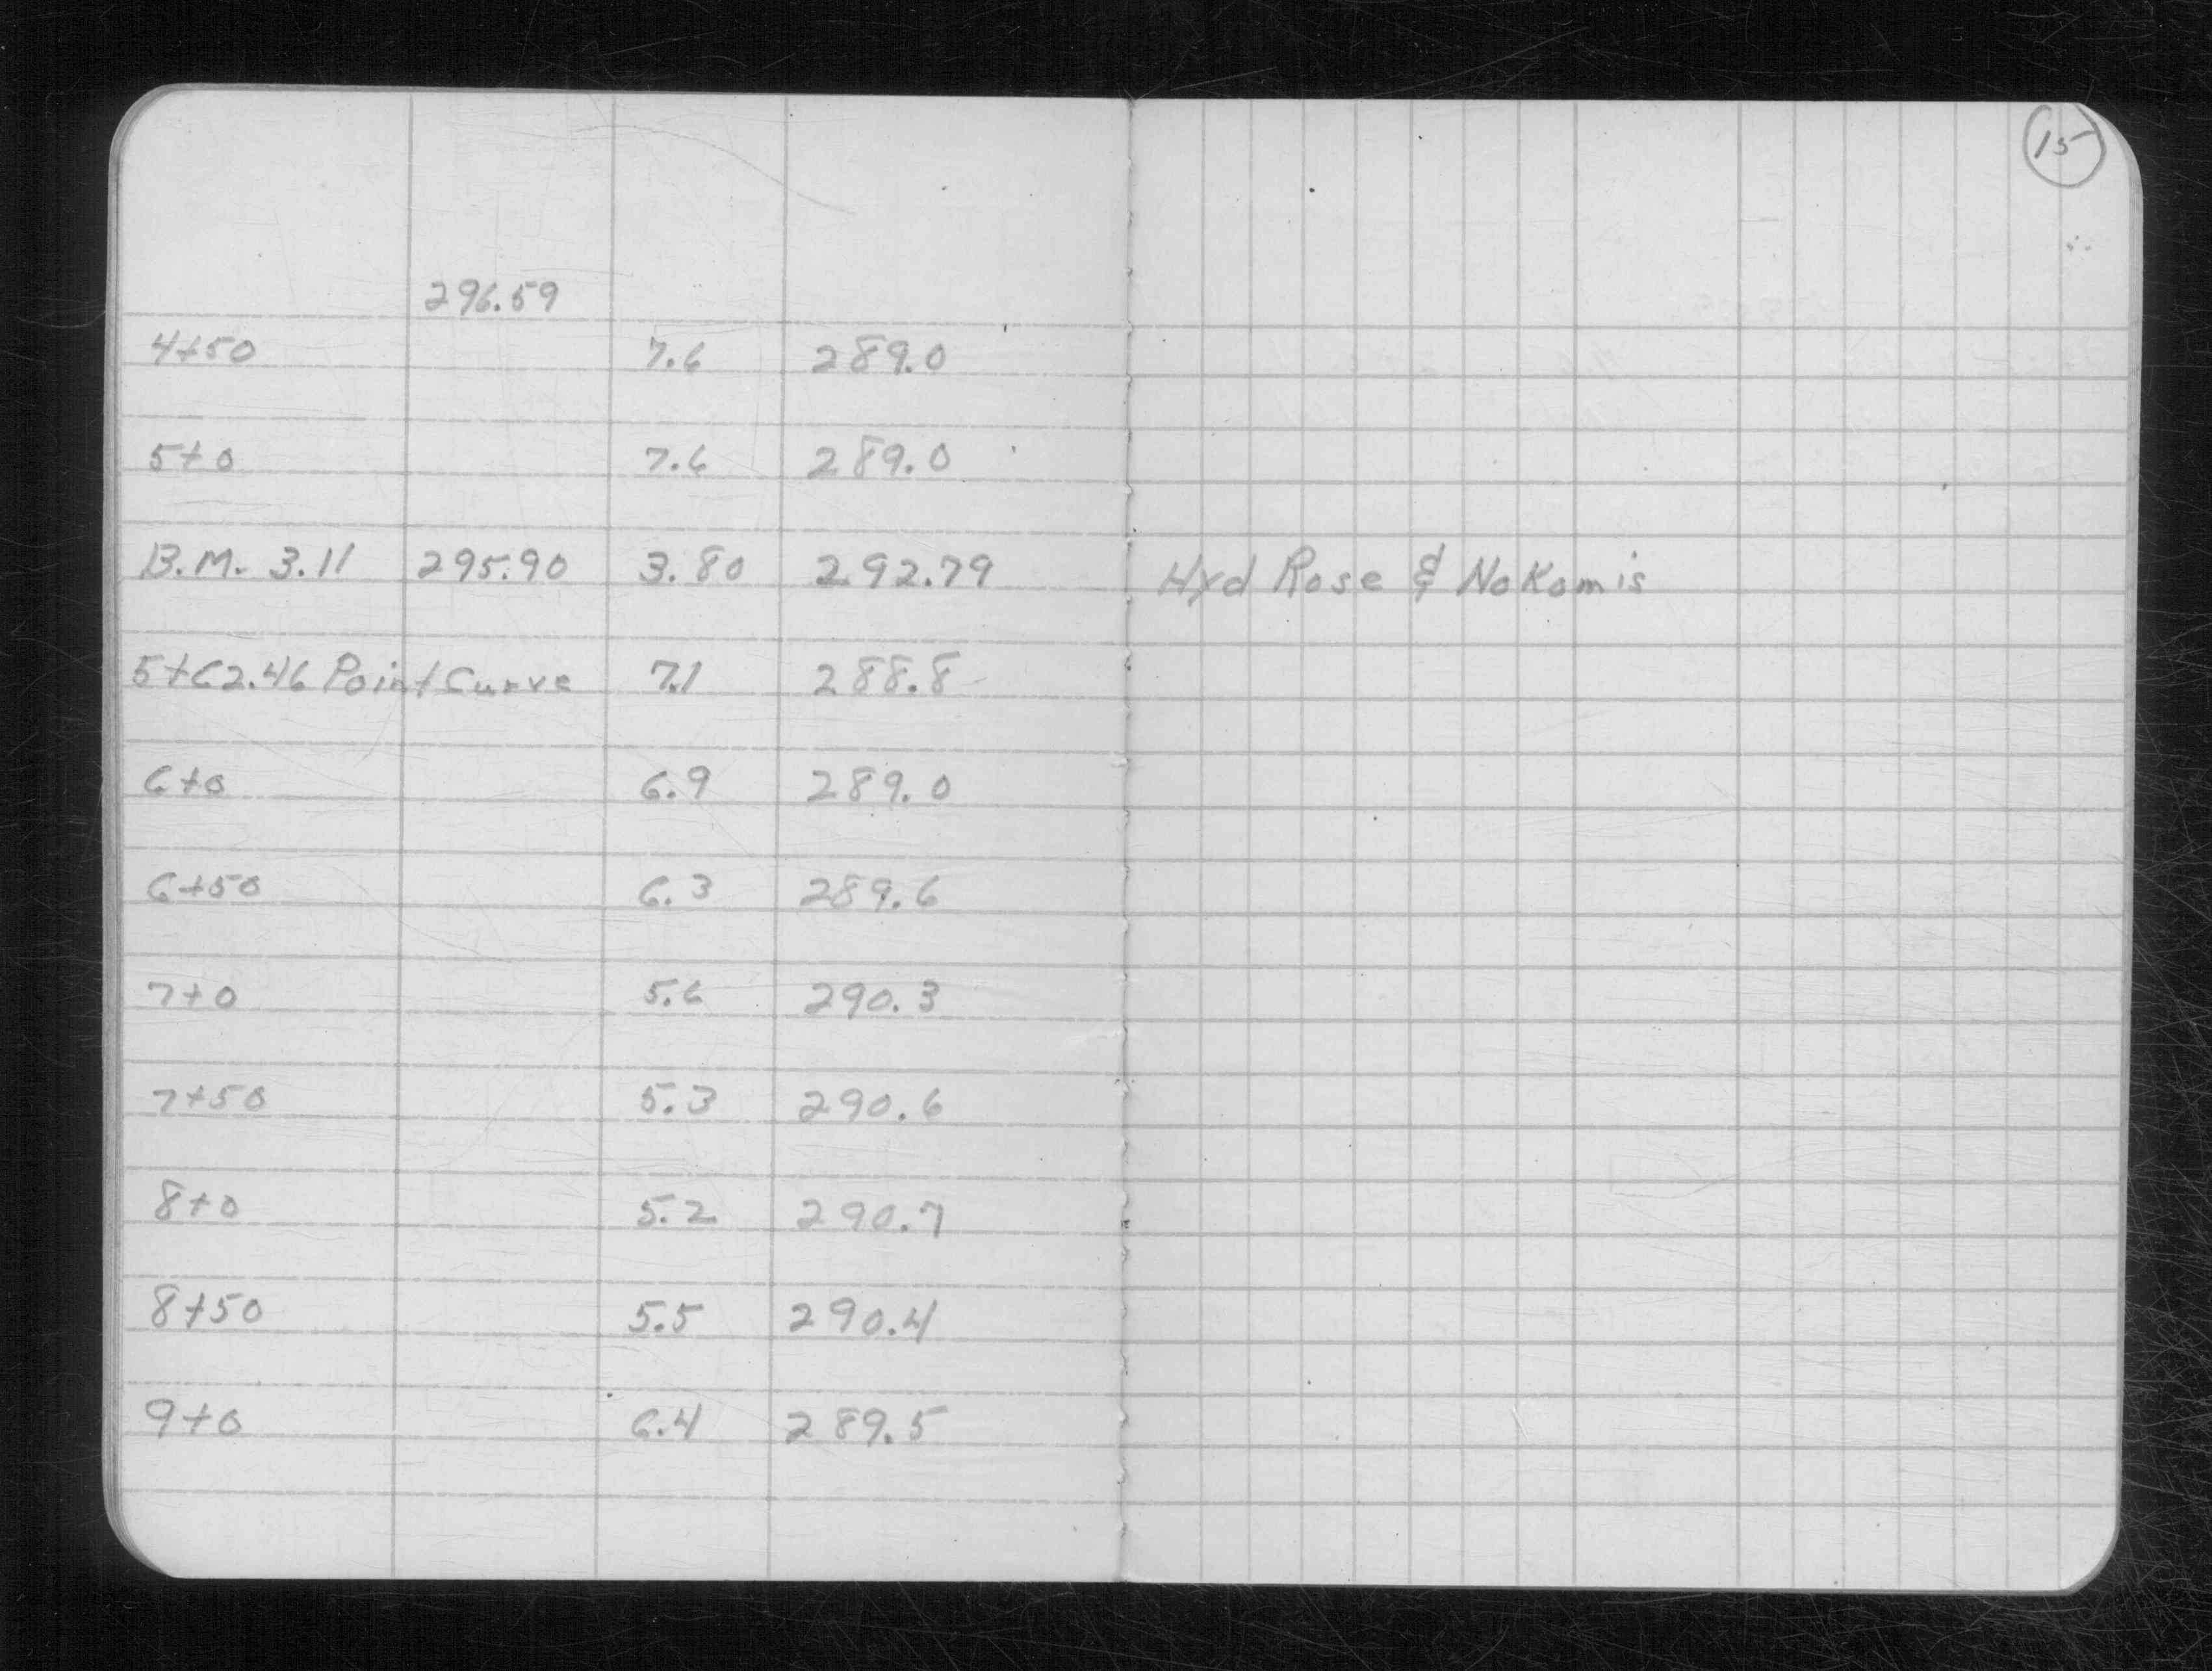 15
296.59
4+50 7.6 289.0
5+0 7.6 289.0
B.M. 3.11 295.90 3.80 292.79 Hyd Rose & Nokomis
5+62.46 Point Curve 7.1 288.8
6+0 6.9 289.0
6+50 6.3 289.6
7+0 5.6 290.3
7+50 5.3 290.6
8+0 5.2 290.7
8+50 5.5 290.4
9+0 6.4 289.5